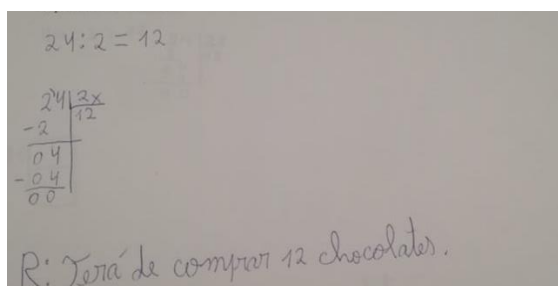 24:2=12
24 2x
-2 12
04
-04
00
R: Terá de comprar 12 chocolates.